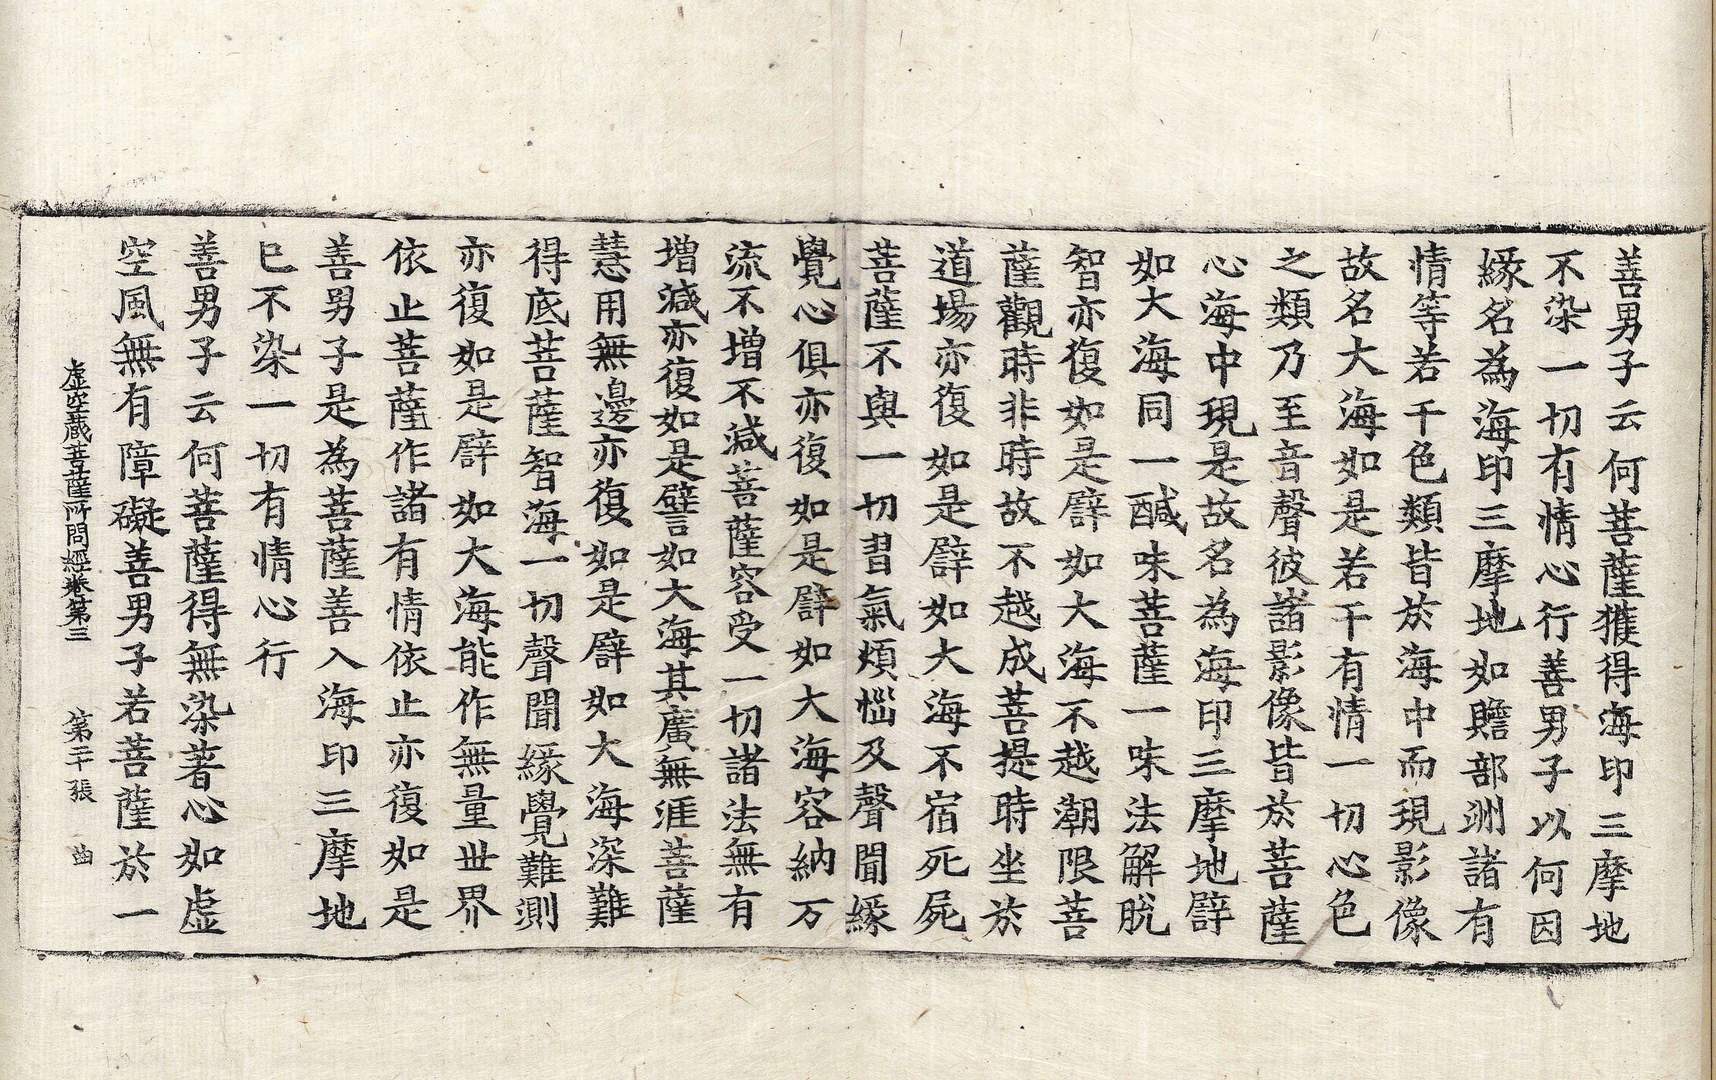 善男子云何菩薩獲得海印三摩地
不染一切有情心行善男子以何因
緣名為海印三摩地如贍部洲諸有
情等若干色類皆於海中而現影像
故名大海如是若干有情一切心色
之類乃至音聲彼諸影像皆於菩薩
心海中現是故名為海印三摩地譬
如大海同一醎味菩薩一味法解脫
智亦復如是譬如大海不越潮限菩
薩觀時非時故不越成菩提時坐於
道場亦復如是譬如大海不宿死屍
菩薩不與一切習氣煩惱及聲聞緣
覺心俱亦復如是譬如大海容納万
流不增不減菩薩容受一切諸法無有
增減亦復如是譬如大海其廣無涯菩薩
慧用無邊亦復如是譬如大海深難
得底菩薩智海一切聲聞緣覺難測
亦復如是譬如大海能作無量世界
依止菩薩作諸有情依止亦復如是
善男子是為菩薩善入海印三摩地
已不染一切有情心行
善男子云何菩薩得無染著心如虛
空風無有障礙善男子若菩薩於一
虛空藏菩薩所問經卷第三 第二十張 曲